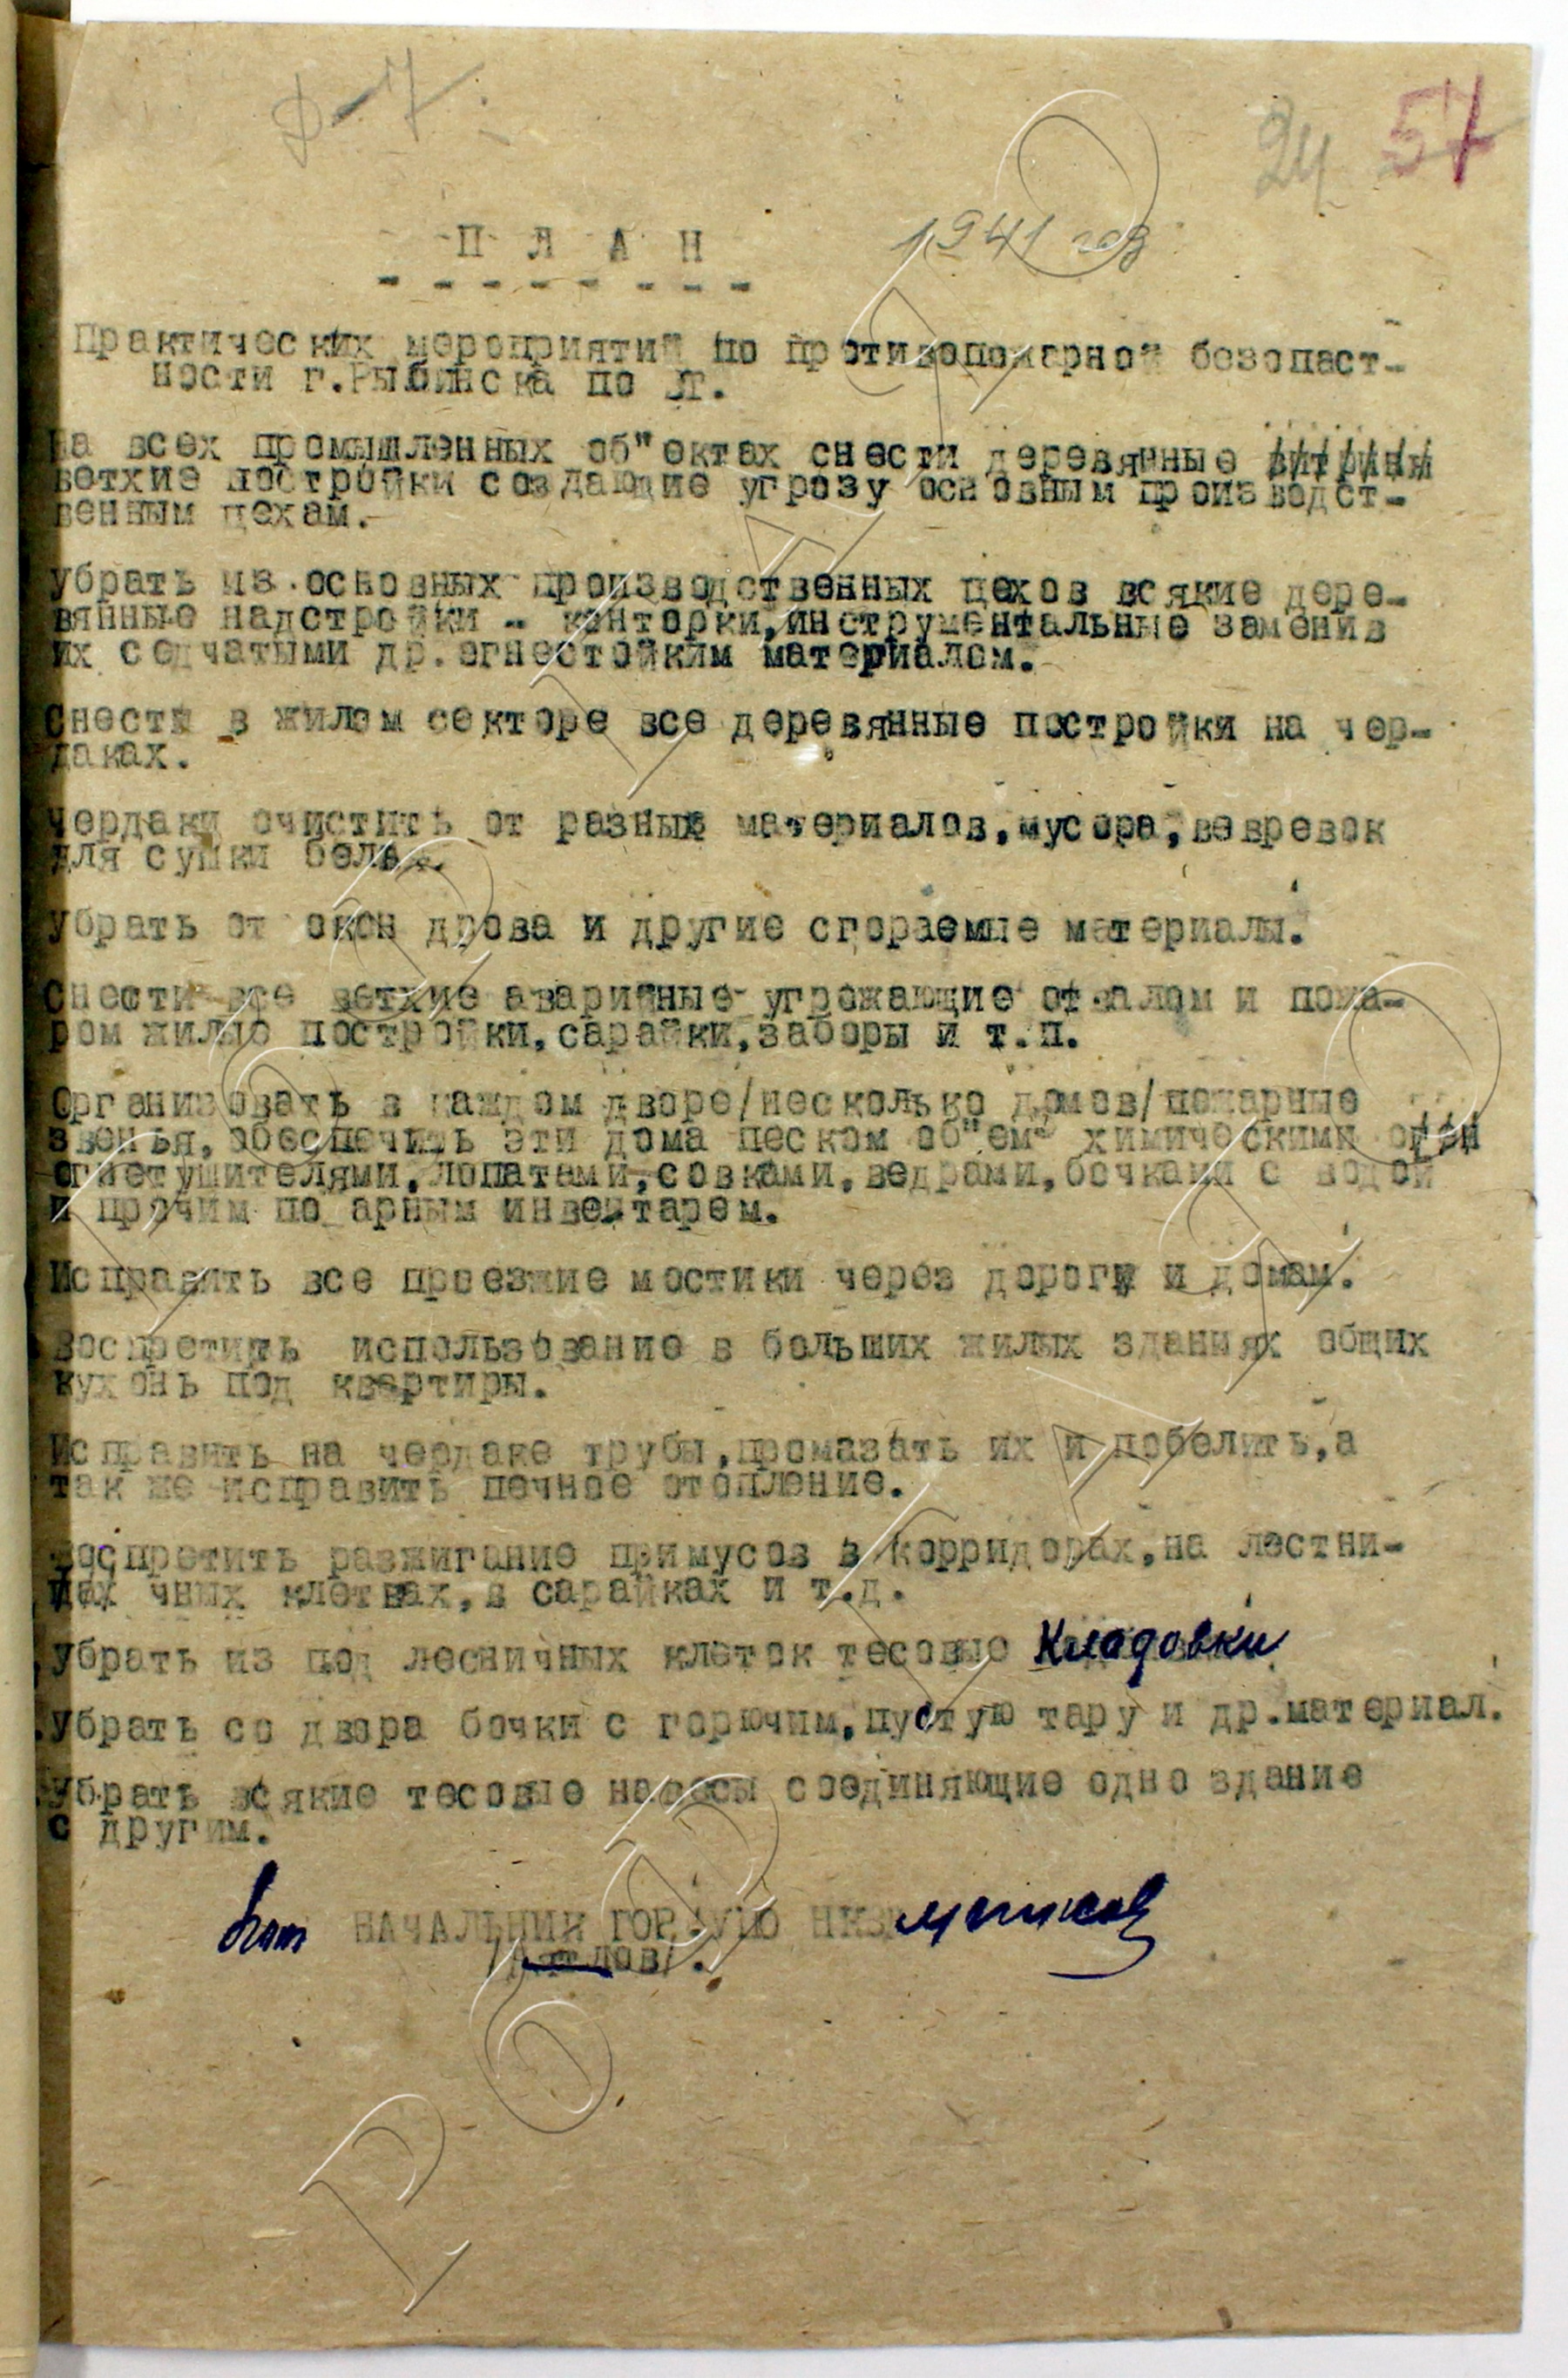 Д-7.
24 57
П Л А Н
1941 год
Практических мероприятий по противопожарной безопаст-
ности г.Рыбинска по
На всех промышленных об"ектах снести деревянные витрины
ветхие постройки создающие угрозу основным производст-
венным цехам.
Убрать из основных производственных цехов всякие дере-
вянные надстройки - конторки,инструментальные заменив
их сетчатыми др.огнестойким материалом.
Снести в жилом секторе все деревянные постройки на чер-
даках.
Чердаки очистить от разных материалов,мусора,вевревок
для сушки белья.
Убрать от окон дрова и другие сгораемые материалы.
Снести все ветхие аварийные угрожающие отвалом и пожа-
ром жилью постройки,сарайки,заборы и т.п.
Организовать в каждом дворе/несколько домов/пожарные
звенья,обеспечить эти дома песком об"ем химическими
огнетушителями,лопатами,совками,ведрами,бочками с водой
и прочим по арным инвентарем.
Исправить все проезжие мостики через дороги и домам.
Воспретить использование в больших жилых зданиях общих
кухонь под квартиры.
Исправить на чердаке трубы,промазать их и побелить,а
так же исправить печное отопление.
Воспретить разжигание примусов в корридорах,на лестни-
чных клетвах,в сарайках и т.д.
Убрать из под лесничных клеток тесовые Кладовки
Убрать со двора бочки с горючим,пустую тару и др.материал.
Убрать всякие тесовые навесы соединяющие одно здание
с другим.
НАЧАЛЬНИК ГОР
РОДИНА